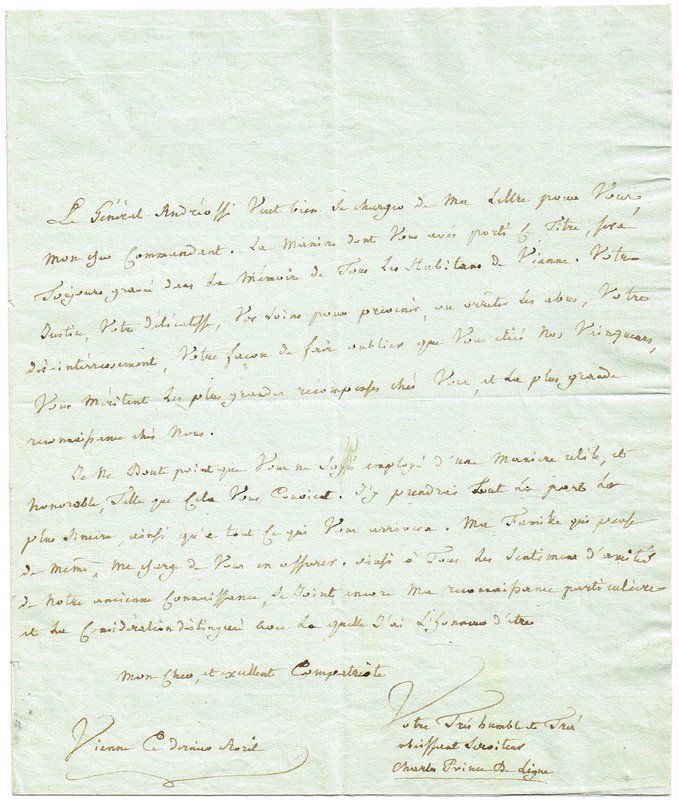 Le Général Andréossi Veut bien Se charger de Ma Lettre pour Vous
mon cher Commandant. La Maniere dont Vous avés porté Ce Titre, sera
Toujours gravé dans La Mémoire de Tous Les Habitans de Vienne. Votre
Justice, Votre délicatesse, Vos Soins pour prevenir, ou arrêter Les abus, Votre
désintéressement, Votre façon de faire oublier que Vous étiés Nos Vainqueurs,
Vous Méritent Les plus grandes recompenses chés Vous, et La plus grande
reconnaissance chés Nous.
Je Ne Doute point que Vous ne Soyés employé d'une Maniere utile, et
honorable, Telle que Cela Vous Convient. J'y prendrai Tout La part La
plus Sincere, ainsi qu'a tout Ce qui Vous arrivera. Ma Famille qui pense
de Même, Me charge de Vous en assurer. ainsi à Tous Les Sentimens d'amitié
de Notre ancienne Connaissance, Se Joint encore Ma reconnaissance particuliere
et La Considération distingué avec La quelle J'ai L'honneur d'etre
Mon Cher, et excellent Compatriote
Votre Très humble et Très
obéissant Serviteur
Charles Prince De Ligne
Vienne Ce dernier Avril